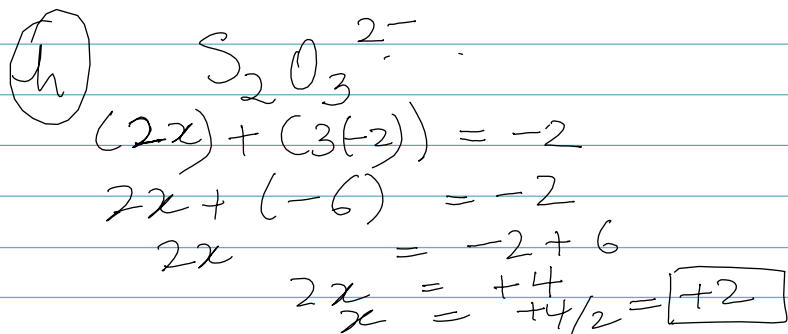 h S₂O₃²⁻
(2x) + (3(-2)) = -2
2x + (-6) = -2
2x = -2 + 6
2x = +4
x = +4/2 = +2